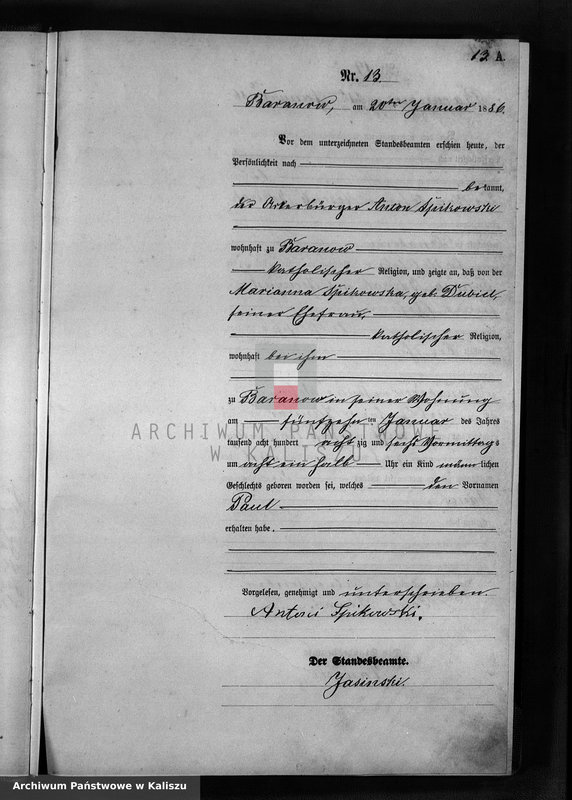 13. A.
Nr. 13.
Baranow, am 20ten Januar 1886.
Vor dem unterzeichneten Standesbeamten erschien heute, der
Persönlichkeit nach
bekannt,
der Ackerbürger Anton Spikowski
wohnhaft zu Baranow
katholischer Religion, und zeigte an, daß von der
Marianna Spikowska, geb. Dubiel,
seiner Ehefrau,
katholischer Religion,
wohnhaft bei ihm
zu Baranow in seiner Wohnung
am fünfzehnten Januar des Jahres
tausend acht hundert achtzig und sechs Vormittags
um acht ein halb Uhr ein Kind männlichen
Geschlechts geboren worden sei, welches den Vornamen
Paul
erhalten habe.
Vorgelesen, genehmigt und unterschrieben
Antoni Spikowski.
Der Standesbeamte.
Jasinski.
ARCHIWUM PAŃSTWOWE
W KALISZU
Archiwum Państwowe w Kaliszu